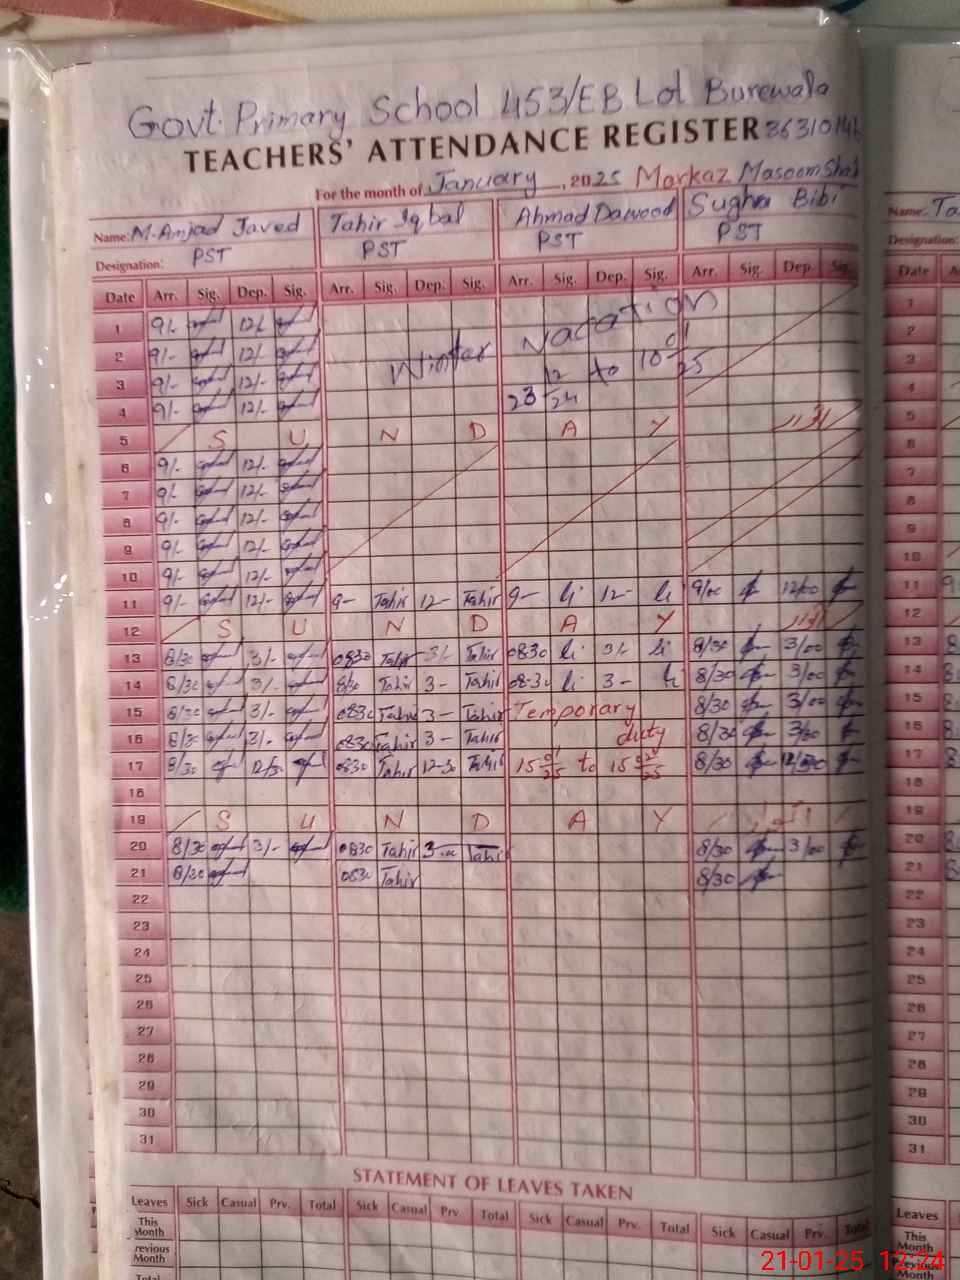 Govt. Primary School 453/EB Lot Burewala
TEACHERS' ATTENDANCE REGISTER
For the month of January, 2025 Markaz Masoom Shah
Name: M. Amjad Javed Tahir Iqbal Ahmad Dawood Sughra Bibi Name: Ta
Designation: PST PST PST PST Designation:
Date Arr. Sig. Dep. Sig. Arr. Sig. Dep. Sig. Arr. Sig. Dep. Sig. Arr. Sig. Dep. Sig. Date
1 9/- 12/- 1
2 9/- 12/- Winter Vacation 2
3 9/- 12/- 12 to 10 01 25 3
4 9/- 12/- 23 24 4
5 S U N D A Y 5
6 9/- 12/- 6
7 9/- 12/- 7
8 9/- 12/- 8
9 9/- 12/- 9
10 9/- 12/- 10
11 9/- 12/- 9- Tahir 12- Tahir 9- 12- 9/00 12/00 11
12 S U N D A Y 12
13 8/30 3/- 0830 Tahir 3/- Tahir 0830 3/- 8/30 3/00 13
14 8/30 3/- 8/30 Tahir 3- Tahir 08-30 3- 8/30 3/00 14
15 8/30 3/- 0830 Tahir 3- Tahir Temporary 8/30 3/00 15
16 8/30 3/- 0830 Tahir 3- Tahir duty 8/30 3/00 16
17 8/30 12/30 0830 Tahir 12-30 Tahir 15 01 25 to 15 02 25 8/30 12/30 17
18 18
19 S U N D A Y 19
20 8/30 3/- 0830 Tahir 3- Tahir 8/30 3/00 20
21 8/30 0830 Tahir 8/30 21
22 22
23 23
24 24
25 25
26 26
27 27
28 28
29 29
30 30
31 31
STATEMENT OF LEAVES TAKEN
Leaves Sick Casual Prv. Total Sick Casual Prv. Total Sick Casual Prv. Total Sick Casual Prv. Total Leaves
This Month This Month
revious Month revious Month
Total
21-01-25 12:24